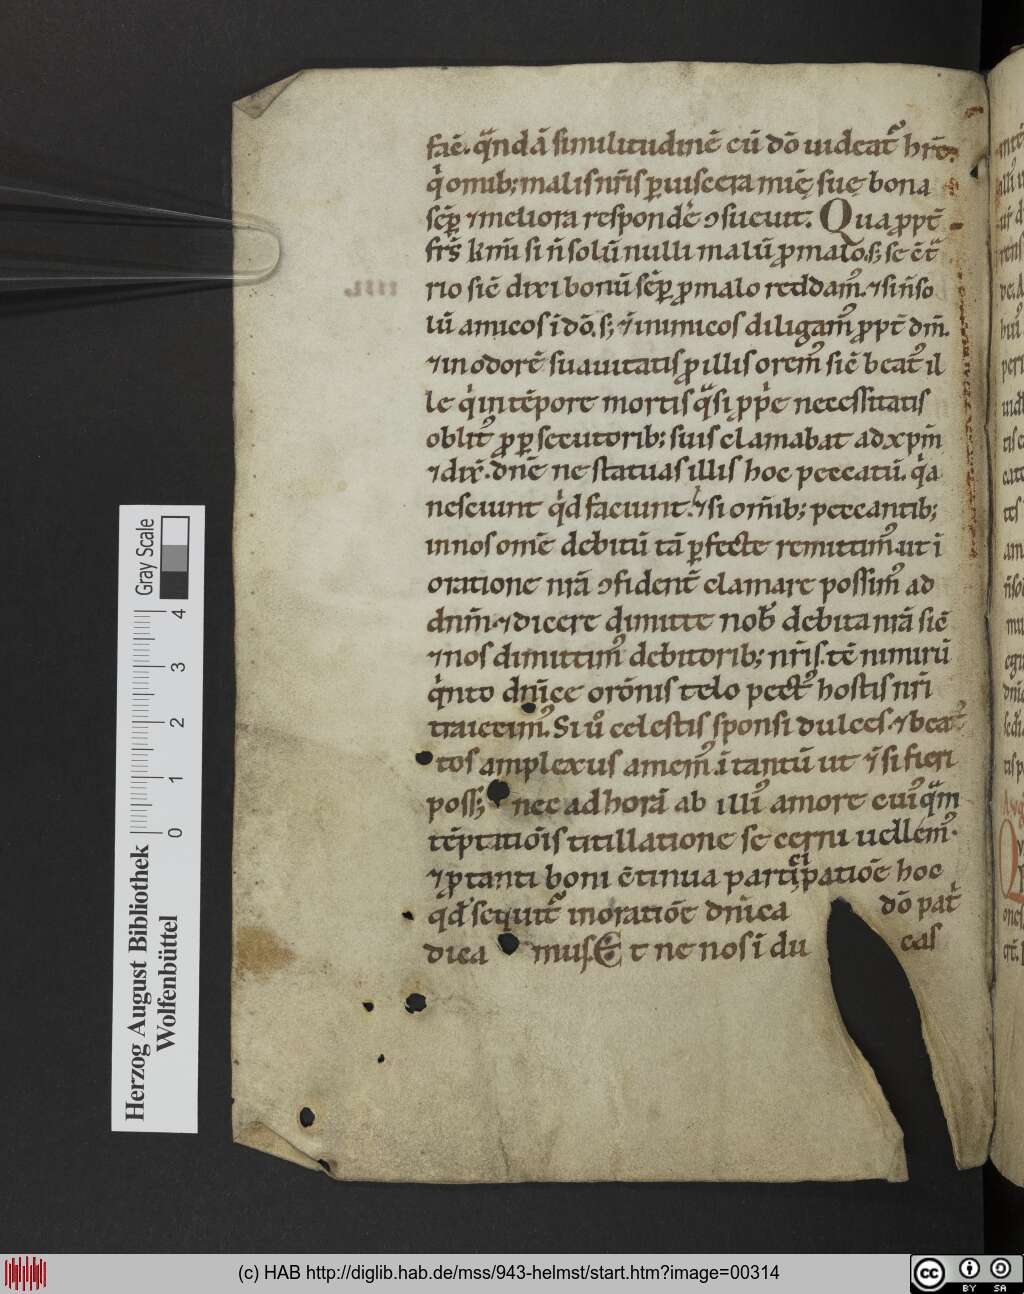 faē. qͣndā similitudinē cū dō uideat᷑ hr̄e.
qͥ omib; malis nr̄is p̱ uiscera mīe suę bona
sēp̱ ⁊ meliora respondē ꝯsueuit. Qua ꝓpt̄
frs̄ km̄i si n̄ solū nulli malū ꝓ malo. s; se ēͣt
rio sic̄ dixi bonū sēp̱ ꝓ malo reddam᷒. ⁊ si n̄ so
lū amicos ī dō. s; ⁊ inimicos diligam᷒ ꝓpt̄ dm̄.
⁊ in odorē suauitatis ꝓ illis orem᷒ sic̄ beat᷒ il
le qͥ in tēpore mortis qͣsi ꝓpͥe necessitatis
oblit᷒ ꝓ p̱secutorib; suis clamabat ad xpm̄
⁊ dix̄. dn̄e ne statuas illis hoc peccatū. qͥa
nesciunt qͥd faciunt. ⁊ si om̄ib; peccantib;
in nos om̄e debitū tā p̱fecte remittim᷒. ut ī
oratione nr̄a ꝯfident̄ clamare possim᷒ ad
dnm̄. ⁊ dicere dimitte nob̄ debita nr̄a sic̄
⁊ nos dimittim᷒ debitorib; nr̄is. tc̄ nimirū
qͥnto dn̄ice orōnis telo pect᷒ hostis nr̄i
traicim᷒. Si u̇ celestis sponsi dulces. ⁊ beat᷒
tos amplexus amem᷒. ī tantū ut ⁊ si fieri
poss; nec ad horā ab illi᷒ amore cui᷒qͣm
tēptatiōis titillatione secerni uellem᷒.
⁊ ꝓ tanti boni c̄tinua participatiōe hoc
qd̄ sequit᷑ in oratiōe dn̄ica dō pat̄
dica mus. Et ne nos ī du cas
IIII.
Gray Scale
4
3
2
1
0
Herzog August Bibliothek
Wolfenbüttel
(c) HAB http://diglib.hab.de/mss/943-helmst/start.htm?image=00314
cc
BY SA